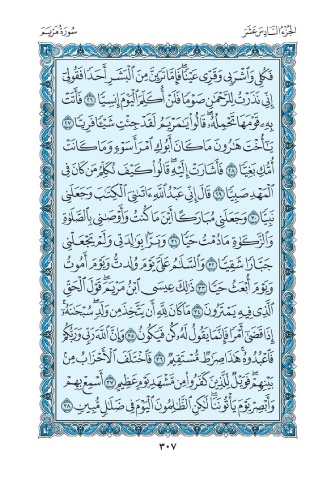 الجزء السادس عشر
سورة مريم
فَكُلِي وَاشْرَبِي وَقَرِّي عَيْنًا فَإِمَّا تَرَيِنَّ مِنَ الْبَشَرِ أَحَدًا فَقُولِي
إِنِّي نَذَرْتُ لِلرَّحْمَٰنِ صَوْمًا فَلَنْ أُكَلِّمَ الْيَوْمَ إِنسِيًّا ٢٦ فَأَتَتْ
بِهِ قَوْمَهَا تَحْمِلُهُ قَالُوا يَا مَرْيَمُ لَقَدْ جِئْتِ شَيْئًا فَرِيًّا ٢٧
يَا أُخْتَ هَارُونَ مَا كَانَ أَبُوكِ امْرَأَ سَوْءٍ وَمَا كَانَتْ
أُمُّكِ بَغِيًّا ٢٨ فَأَشَارَتْ إِلَيْهِ قَالُوا كَيْفَ نُكَلِّمُ مَن كَانَ فِي
الْمَهْدِ صَبِيًّا ٢٩ قَالَ إِنِّي عَبْدُ اللَّهِ آتَانِيَ الْكِتَابَ وَجَعَلَنِي
نَبِيًّا ٣٠ وَجَعَلَنِي مُبَارَكًا أَيْنَ مَا كُنتُ وَأَوْصَانِي بِالصَّلَاةِ
وَالزَّكَاةِ مَا دُمْتُ حَيًّا ٣١ وَبَرًّا بِوَالِدَتِي وَلَمْ يَجْعَلْنِي
جَبَّارًا شَقِيًّا ٣٢ وَالسَّلَامُ عَلَيَّ يَوْمَ وُلِدتُّ وَيَوْمَ أَمُوتُ
وَيَوْمَ أُبْعَثُ حَيًّا ٣٣ ذَٰلِكَ عِيسَى ابْنُ مَرْيَمَ قَوْلَ الْحَقِّ
الَّذِي فِيهِ يَمْتَرُونَ ٣٤ مَا كَانَ لِلَّهِ أَن يَتَّخِذَ مِن وَلَدٍ سُبْحَانَهُ
إِذَا قَضَىٰ أَمْرًا فَإِنَّمَا يَقُولُ لَهُ كُن فَيَكُونُ ٣٥ وَإِنَّ اللَّهَ رَبِّي وَرَبُّكُمْ
فَاعْبُدُوهُ هَٰذَا صِرَاطٌ مُّسْتَقِيمٌ ٣٦ فَاخْتَلَفَ الْأَحْزَابُ مِن
بَيْنِهِمْ فَوَيْلٌ لِّلَّذِينَ كَفَرُوا مِن مَّشْهَدِ يَوْمٍ عَظِيمٍ ٣٧ أَسْمِعْ بِهِمْ
وَأَبْصِرْ يَوْمَ يَأْتُونَنَا لَٰكِنِ الظَّالِمُونَ الْيَوْمَ فِي ضَلَالٍ مُّبِينٍ ٣٨
٣٠٧